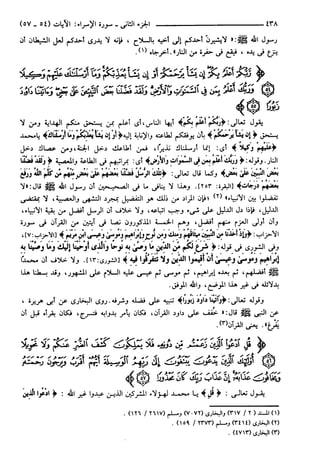 ٤٣٨ الجزء الثاني - سورة الإسراء: الآيات (٥٤ - ٥٧)
رسول الله ﷺ: «لا يشيرنّ أحدكم إلى أخيه بالسلاح ، فإنه لا يدرى أحدكم لعل الشيطان أن
ينزع فى يده ، فيقع فى حفرة من النار» . أخرجاه (١).
﴿ رَبُّكُمْ أَعْلَمُ بِكُمْ إِن يَشَأْ يَرْحَمْكُمْ أَوْ إِن يَشَأْ يُعَذِّبْكُمْ وَمَا أَرْسَلْنَاكَ عَلَيْهِمْ وَكِيلًا
(٥٤) وَرَبُّكَ أَعْلَمُ بِمَن فِي السَّمَاوَاتِ وَالْأَرْضِ وَلَقَدْ فَضَّلْنَا بَعْضَ النَّبِيِّينَ عَلَى بَعْضٍ وَآتَيْنَا دَاوُودَ
زَبُورًا (٥٥) ﴾
يقول تعالى: ﴿ رَبُّكُمْ أَعْلَمُ بِكُمْ ﴾ أيها الناس، أى أعلم بمن يستحق منكم الهداية ومن لا
يستحق ﴿ إِن يَشَأْ يَرْحَمْكُمْ ﴾ بأن يوفقكم لطاعته والإنابة إليه ﴿ أَوْ إِن يَشَأْ يُعَذِّبْكُمْ وَمَا أَرْسَلْنَاكَ ﴾ يا محمد
﴿ عَلَيْهِمْ وَكِيلًا ﴾ أى: إنما أرسلناك نذيرًا، فمن أطاعك دخل الجنة، ومن عصاك دخل
النار. وقوله: ﴿ وَرَبُّكَ أَعْلَمُ بِمَن فِي السَّمَوَاتِ وَالأَرْضِ ﴾ أى: بمراتبهم فى الطاعة والمعصية ﴿ وَلَقَدْ فَضَّلْنَا
بَعْضَ النَّبِيِّينَ عَلَى بَعْضٍ ﴾ وكما قال تعالى: ﴿ تِلْكَ الرُّسُلُ فَضَّلْنَا بَعْضَهُمْ عَلَى بَعْضٍ مِّنْهُم مَّن كَلَّمَ اللَّهُ وَرَفَعَ
بَعْضَهُمْ دَرَجَاتٍ ﴾ [البقرة: ٢٥٣]. وهذا لا ينافى ما فى الصحيحين أن رسول الله ﷺ قال: «لا
تفضلوا بين الأنبياء» (٢) فإن المراد من ذلك هو التفضيل بمجرد التشهى والعصبية، لا بمقتضى
الدليل، فإذا دل الدليل على شىء وجب اتباعه، ولا خلاف أن الرسل أفضل من بقية الأنبياء،
وأن أولى العزم منهم أفضل، وهم الخمسة المذكورون نصا فى آيتين من القرآن فى سورة
الأحزاب: ﴿ وَإِذْ أَخَذْنَا مِنَ النَّبِيِّينَ مِيثَاقَهُمْ وَمِنكَ وَمِن نُّوحٍ وَإِبْرَاهِيمَ وَمُوسَى وَعِيسَى ابْنِ مَرْيَمَ ﴾ [الأحزاب: ٧]،
وفى الشورى فى قوله: ﴿ شَرَعَ لَكُم مِّنَ الدِّينِ مَا وَصَّى بِهِ نُوحًا وَالَّذِي أَوْحَيْنَا إِلَيْكَ وَمَا وَصَّيْنَا بِهِ
إِبْرَاهِيمَ وَمُوسَى وَعِيسَى أَنْ أَقِيمُوا الدِّينَ وَلا تَتَفَرَّقُوا فِيهِ ﴾ [الشورى: ١٣]. ولا خلاف أن محمدًا
ﷺ أفضلهم، ثم بعده إبراهيم، ثم موسى ثم عيسى عليه السلام على المشهور، وقد بسطنا هذا
بدلائله فى غير هذا الموضع، والله الموفق.
وقوله تعالى: ﴿ وَآتَيْنَا دَاوُدَ زَبُورًا ﴾ تنبيه على فضله وشرفه. روى البخارى عن أبى هريرة ،
عن النبى ﷺ قال: «خفف على داود القرآن، فكان يأمر بدوابه فتسرج، فكان يقرأه قبل أن
يفرغ». يعنى القرآن (٣).
﴿ قُلِ ادْعُوا الَّذِينَ زَعَمْتُم مِّن دُونِهِ فَلَا يَمْلِكُونَ كَشْفَ الضُّرِّ عَنكُمْ وَلَا تَحْوِيلًا
(٥٦) أُولَئِكَ الَّذِينَ يَدْعُونَ يَبْتَغُونَ إِلَى رَبِّهِمُ الْوَسِيلَةَ أَيُّهُمْ أَقْرَبُ وَيَرْجُونَ رَحْمَتَهُ
وَيَخَافُونَ عَذَابَهُ إِنَّ عَذَابَ رَبِّكَ كَانَ مَحْذُورًا (٥٧) ﴾
يقول تعالى : ﴿ قُلِ ﴾ يا محمد لهؤلاء المشركين الذين عبدوا غير الله : ﴿ ادْعُوا الَّذِينَ
(١) المسند (٢ / ٣١٧) والبخارى (٧٠٧٢) ومسلم (٢٦١٧ / ١٢٦) .
(٢) البخارى (٣٤١٤) ومسلم (٢٣٧٣ / ١٥٩) .
(٣) البخارى (٤٧١٣) .